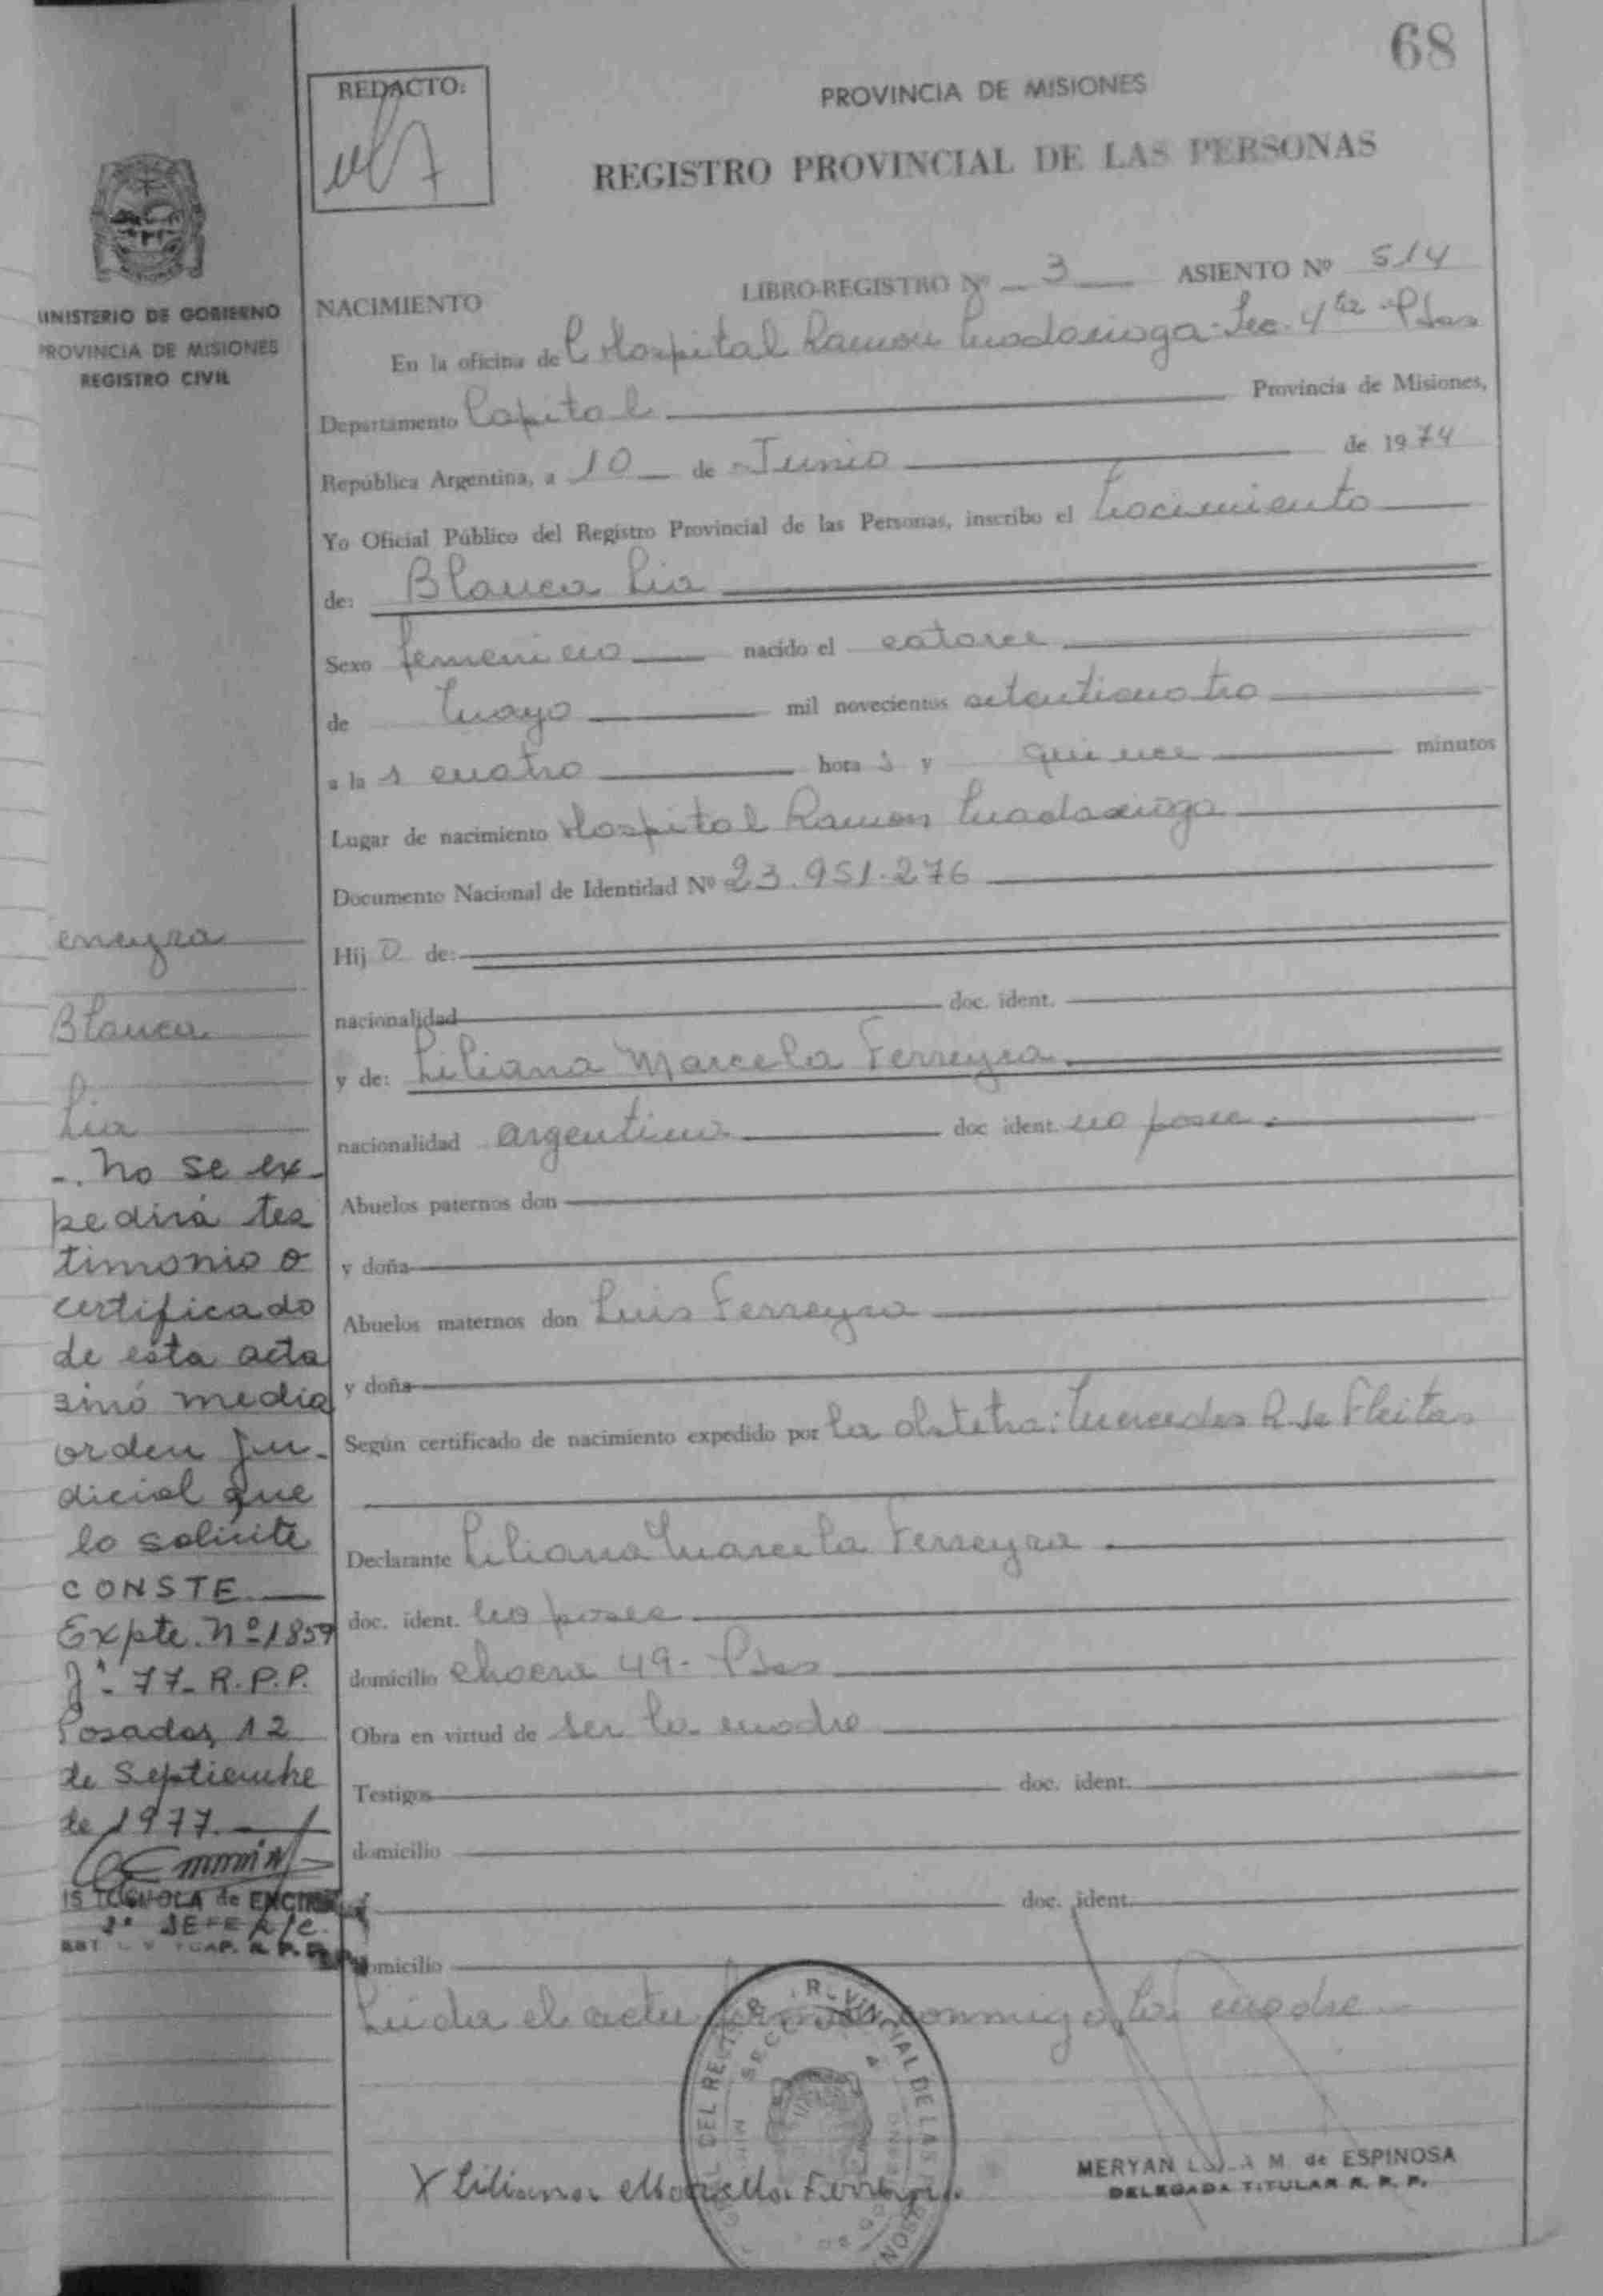 68
REDACTO:
PROVINCIA DE MISIONES
REGISTRO PROVINCIAL DE LAS PERSONAS
MINISTERIO DE GOBIERNO
PROVINCIA DE MISIONES
REGISTRO CIVIL
NACIMIENTO
LIBRO-REGISTRO Nº 3 ASIENTO Nº 514
En la oficina del Hospital Ramon Madariaga - Sec. 4ta - Pdas
Departamento Capital Provincia de Misiones,
República Argentina, a 10 de Junio de 1974
Yo Oficial Público del Registro Provincial de las Personas, inscribo el Nacimiento
de: Blanca Lia
Sexo femenino nacido el catorce
de Mayo mil novecientos setenticuatro
a las cuatro horas y quince minutos
Lugar de nacimiento Hospital Ramon Madariaga
Documento Nacional de Identidad Nº 23.951.276
Hija de:
nacionalidad doc. ident.
y de: Liliana Marcela Ferreyra
nacionalidad argentina doc ident. no posee.
Abuelos paternos don
y doña
Abuelos maternos don Luis Ferreyra
y doña
Según certificado de nacimiento expedido por la obstetra: Mercedes R. de Fleitas
Declarante Liliana Marcela Ferreyra
doc. ident. no posee
domicilio chacra 49 - Pdas
Obra en virtud de ser la madre
Testigos doc. ident.
domicilio
doc. ident.
domicilio
Leida el acta firma conmigo la madre
X Liliana Marcella Ferreyra.
MERYAN M. de ESPINOSA
DELEGADA TITULAR R. P. P.
erreyra
Blanca
Lia
-. No se ex-
pedirá tes
timonio o
certificado
de esta acta
sinó media
orden ju-
dicial que
lo solicite
CONSTE
Expte. Nº 1859
77- R.P.P.
Posadas, 12
de Septiembre
de 1977
de
2º JEFE A/C.